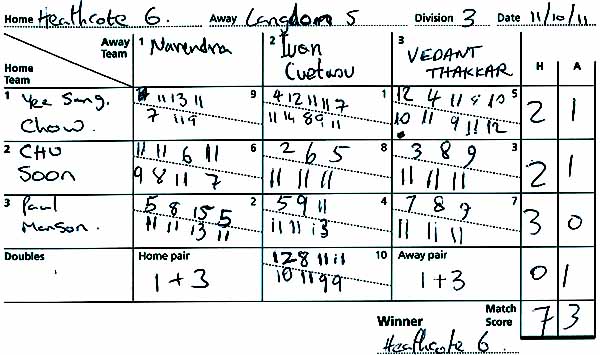 Home Heathcote 6. Away Langdon 5 Division 3 Date 11/10/11
Away Team 1 Narendra 2 Ivan 3 VEDANT THAKKAR H A
Home Team
1 Yee Sang Chow. 9 11 13 11 1 4 12 11 11 7 5 12 4 11 8 10 2 1
7 11 9 11 14 8 9 11 10 11 9 11 12
2 CHU Soon 6 11 11 6 11 8 2 6 5 3 3 8 9 2 1
9 8 11 7 11 11 11 11 11 11
3 Paul Manson. 2 5 8 15 5 4 5 9 11 7 7 8 9 3 0
11 11 13 11 11 11 13 11 11 11
Doubles Home pair 10 12 8 11 11 Away pair 0 1
1 + 3 10 11 9 9 1 + 3
Winner Match Score 7 3
Heathcote 6.